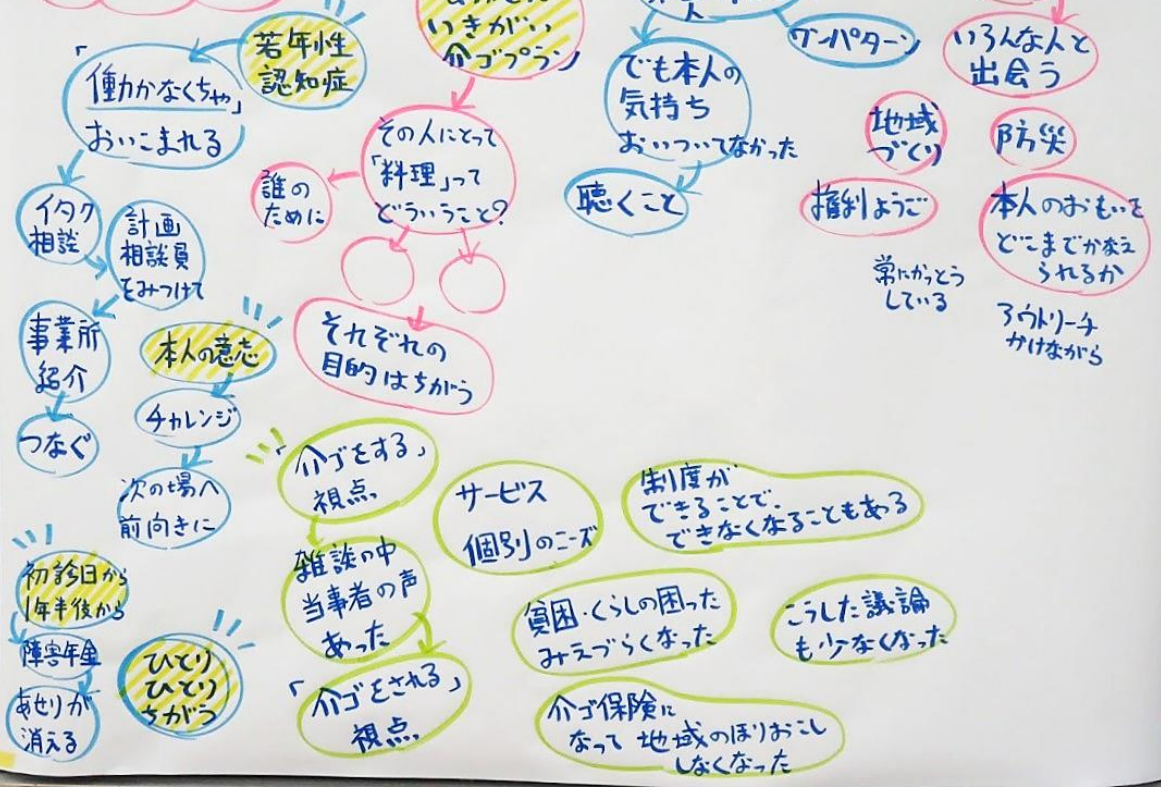 若年性
認知症
「働かなくちゃ」
おいこまれる
イタク
相談
計画
相談員
をみつけて
事業所
紹介
つなぐ
本人の意志
チャレンジ
次の場へ
前向きに
初診日から
1年半後から
障害年金
あせりが
消える
ひとり
ひとり
ちがう
いきがい
介ゴプラン」
その人にとって
「料理」って
どういうこと?
誰の
ために
それぞれの
目的はちがう
「介ゴをする」
視点
雑談の中
当事者の声
あった
「介ゴをされる」
視点
サービス
個別のニーズ
制度が
できることで、
できなくなることもある
貧困・くらしの困った
みえづらくなった
こうした議論
も少なくなった
介ゴ保険に
なって 地域のほりおこし
しなくなった
人
ワンパターン
でも本人の
気持ち
おいついてなかった
聴くこと
いろんな人と
出会う
地域
づくり
防災
権利ようご
本人のおもいを
どこまでかなえ
られるか
常にかっとう
している
アウトリーチ
かけながら